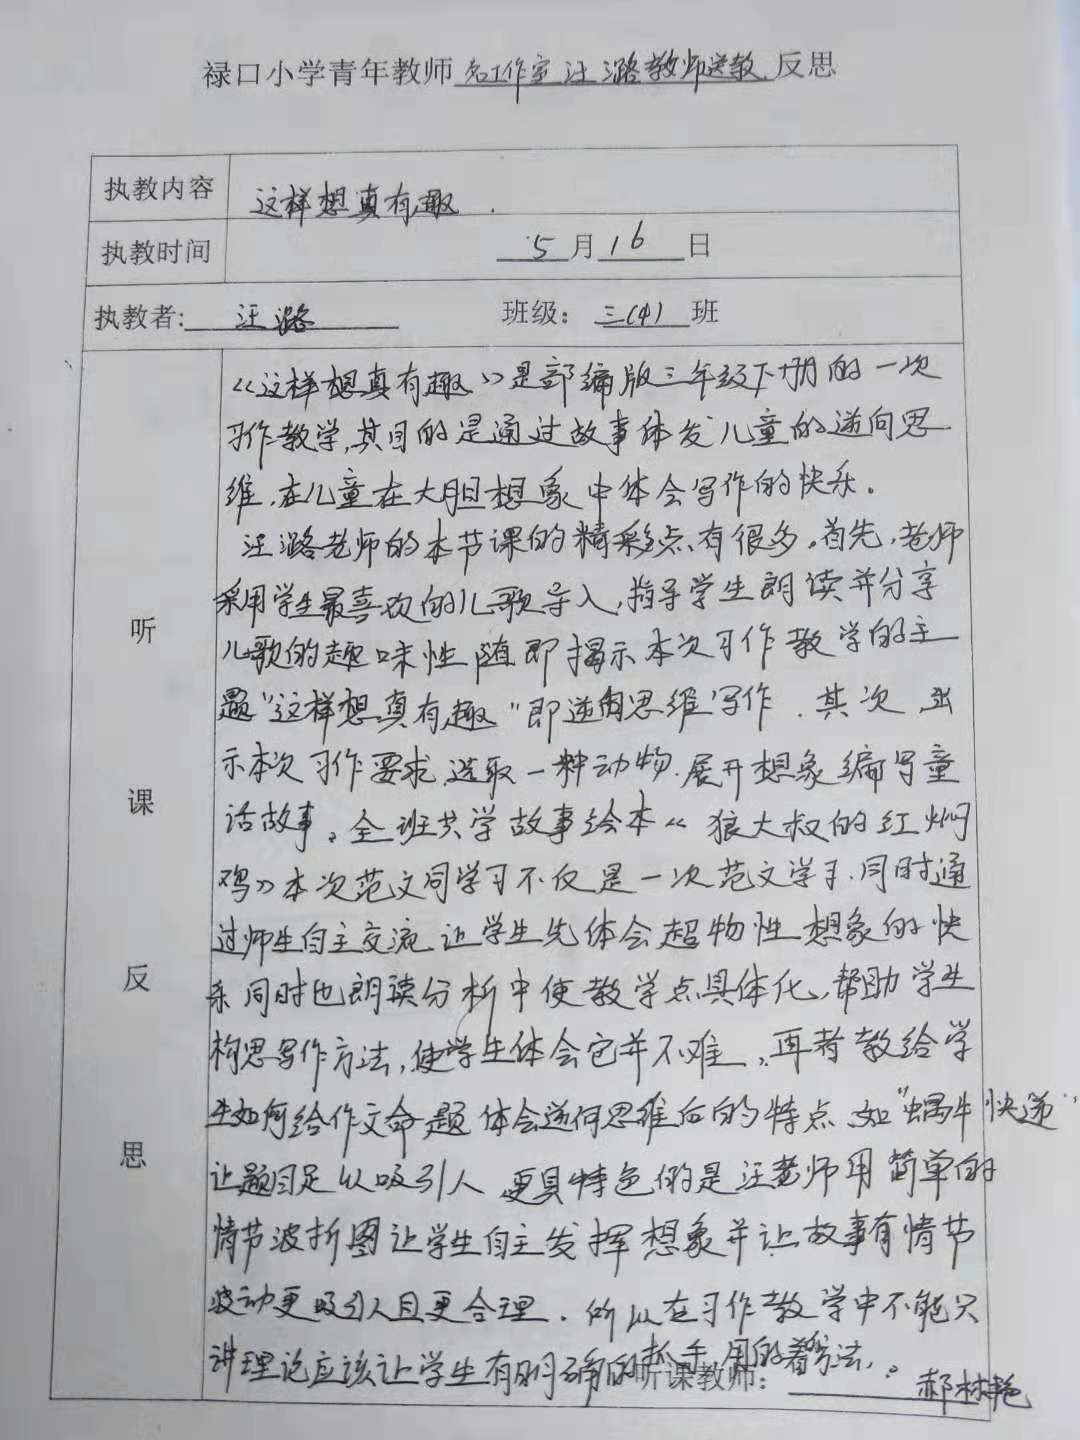 禄口小学青年教师名工作室汪潞教师送教反思
执教内容 这样想真有趣.
执教时间 5月16日
执教者: 汪潞 班级: 三(4)班
听课反思
《这样想真有趣》是部编版三年级下册的一次
习作教学,其目的是通过故事体发儿童的逆向思
维,在儿童在大胆想象中体会写作的快乐。
汪潞老师的本节课的精彩点有很多。首先,老师
采用学生最喜欢的儿歌导入,指导学生朗读并分享
儿歌的趣味性随即揭示本次习作教学的主
题"这样想真有趣"即逆向思维写作.其次,出
示本次习作要求,选取一种动物.展开想象编写童
话故事。全班共学故事绘本《狼大叔的红焖
鸡》本次范文同学习不仅是一次范文学习.同时通
过师生自主交流让学生先体会超物性想象的快
乐同时也朗读分析中使教学点具体化,帮助学生
构思写作方法,使学生体会它并不难。再者教给学
生如何给作文命题体会逆向思维后的特点,如"蜗牛快递"
让题目足以吸引人,更具特色的是汪老师用简单的
情节波折图让学生自主发挥想象并让故事有情节
波动更吸引人且更合理.所以在习作教学中不能只
讲理论应该让学生有明确的抓手,用的着方法。
听课教师: 郝林艳